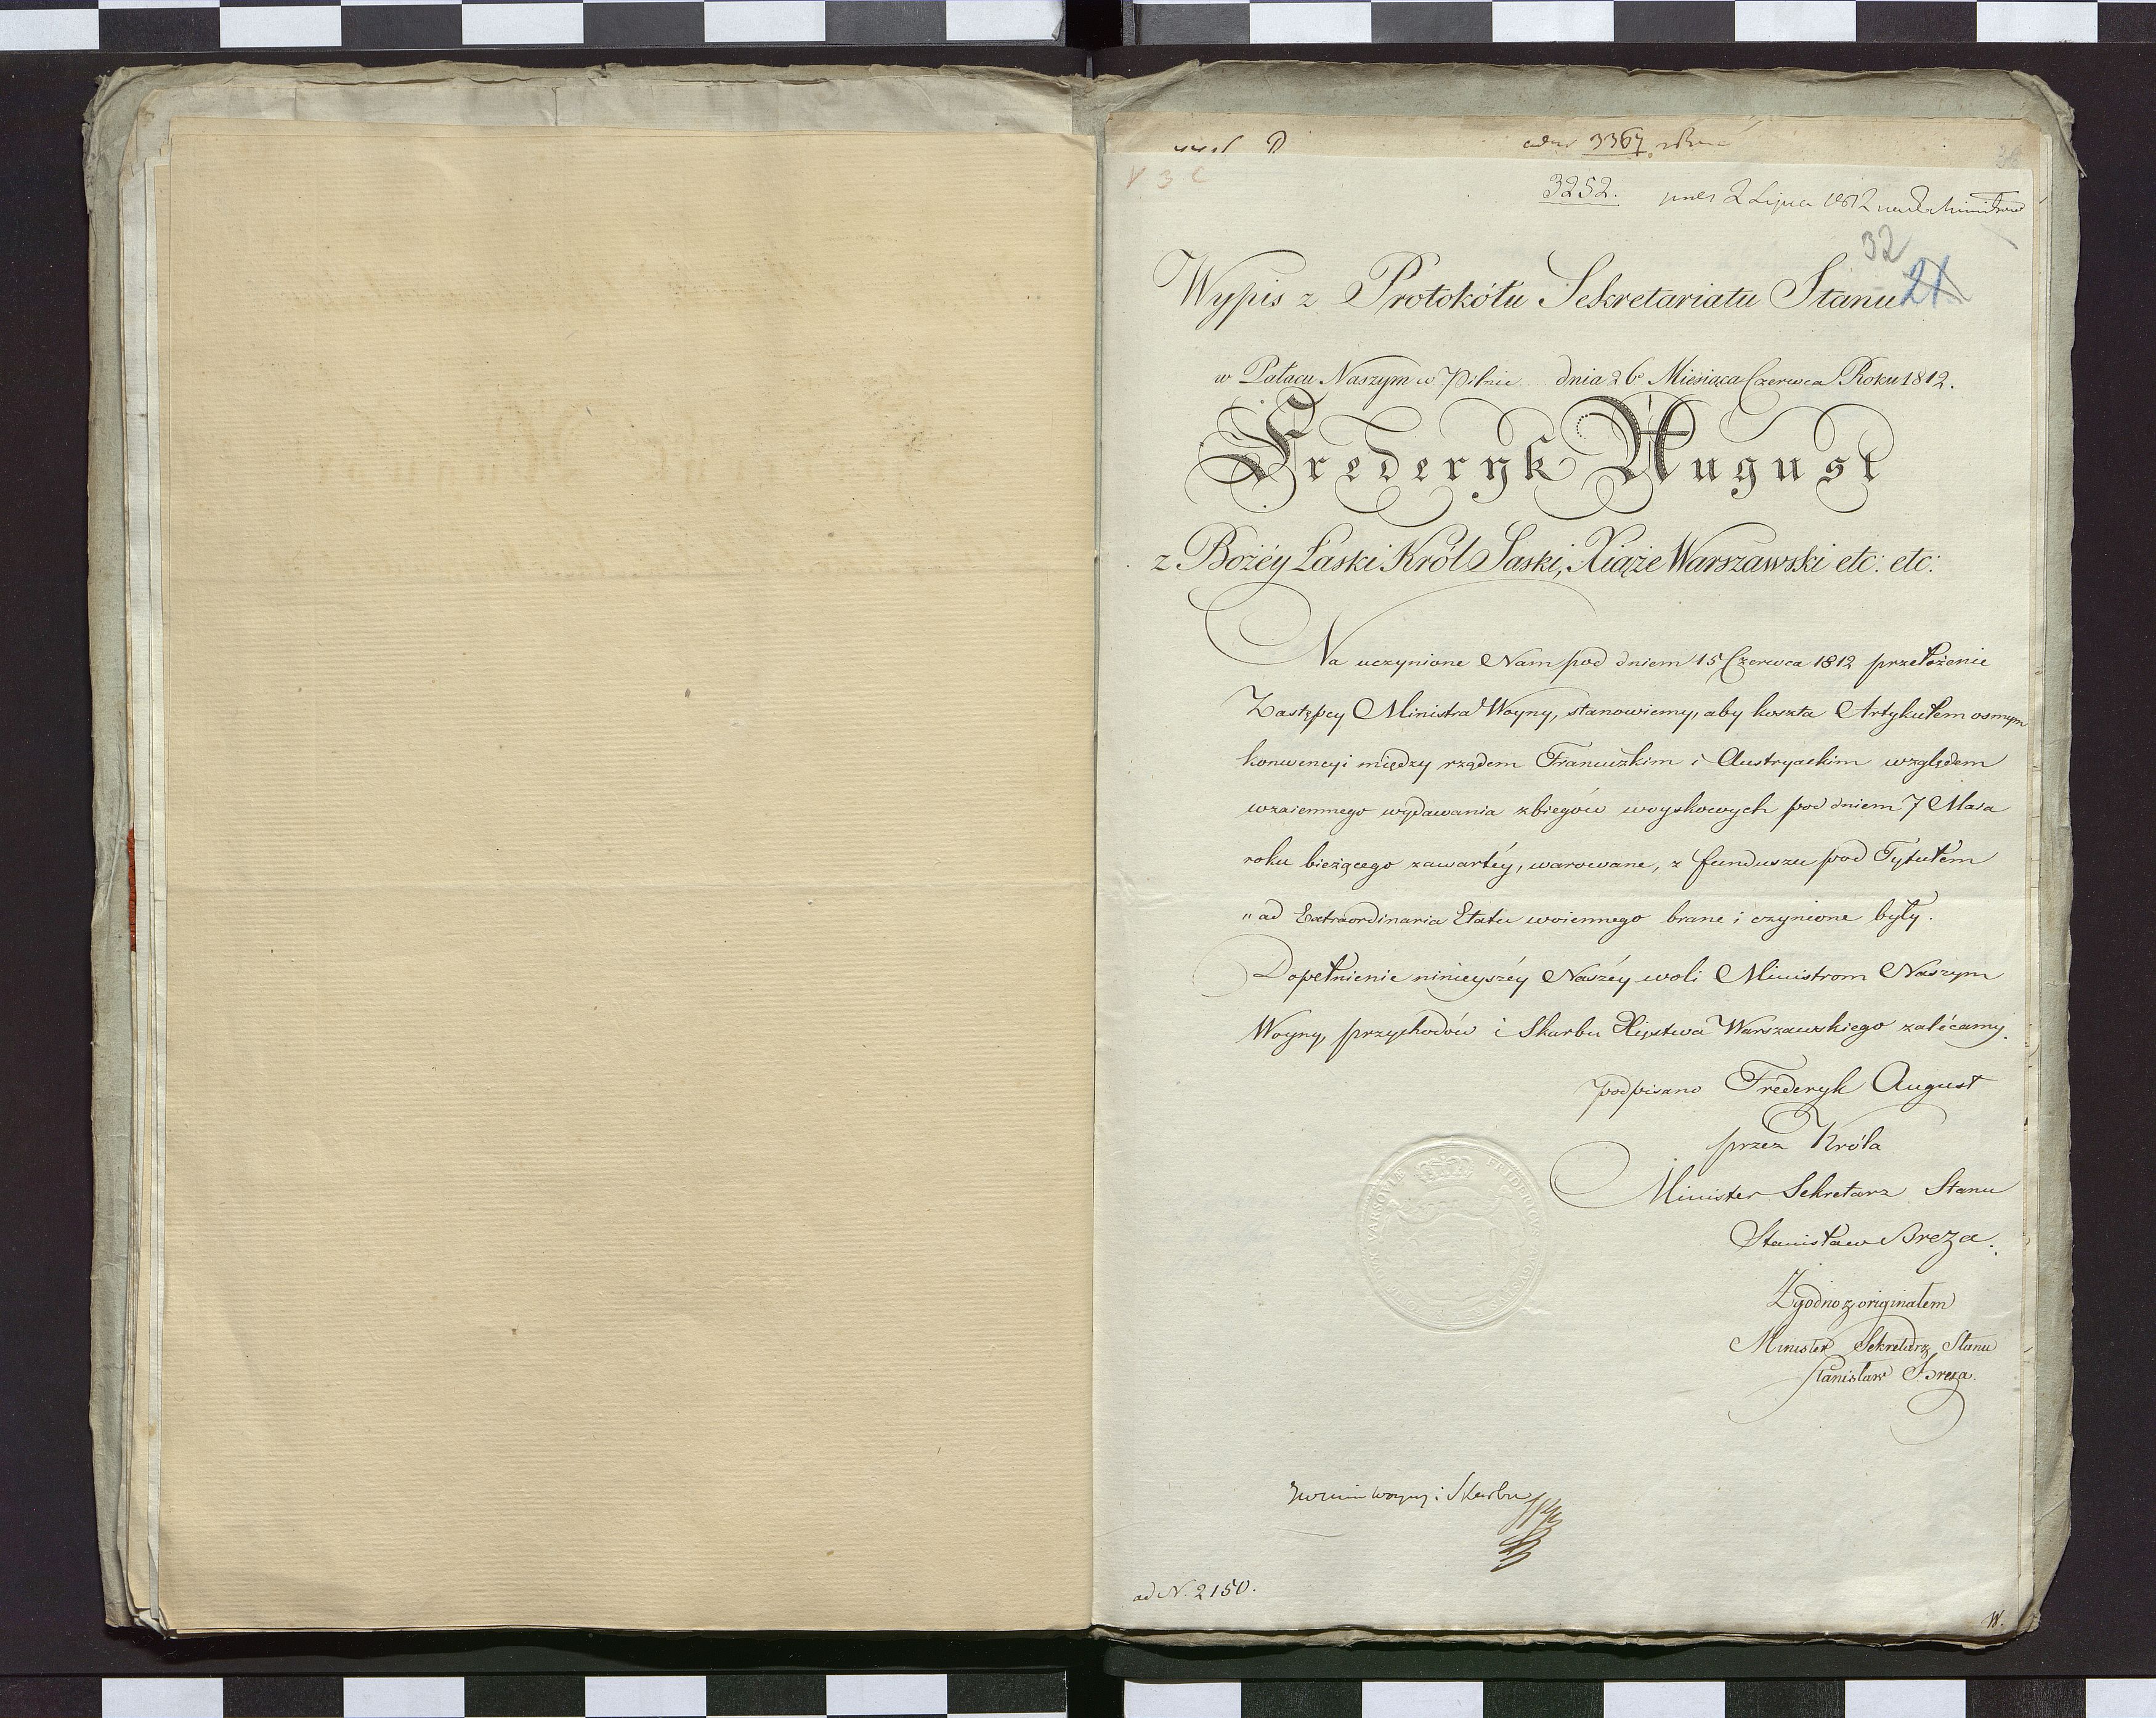 3367
3252. 2 Lipca 1812
32
21
Wypis z Protokółu Sekretariatu Stanu
w Pałacu Naszym w Pilnic dnia 26 Miesiąca Czerwca Roku 1812.
Frederyk August
z Bożéy Łaski Król Saski, Xiąże Warszawski etc: etc:
Na uczynione Nam pod dniem 15 Czerwca 1812 przełożenie
Zastępcy Ministra Woyny, stanowiemy, aby koszta Artykułem osmym
konwencyi między rządem Francuzkim i Austryackim względem
wzaiemnego wydawania zbiegów woyskowych pod dniem 7 Maia
roku bieżącego zawartéy, warowane, z funduszu pod Tytułem
"ad Extraordinaria Etatu woiennego brane i czynione były.
Dopełnienie ninieyszéy Naszéy woli Ministrom Naszym
Woyny, przychodów i Skarbu Xięstwa Warszawskiego zalécamy.
podpisano Frederyk August
przez Króla
Minister Sekretarz Stanu
Stanisław Breza.
Zgodno z originałem
Minister Sekretarz Stanu
Stanisław Breza.
Woyny i Skarbu
ad N. 2150.
W.